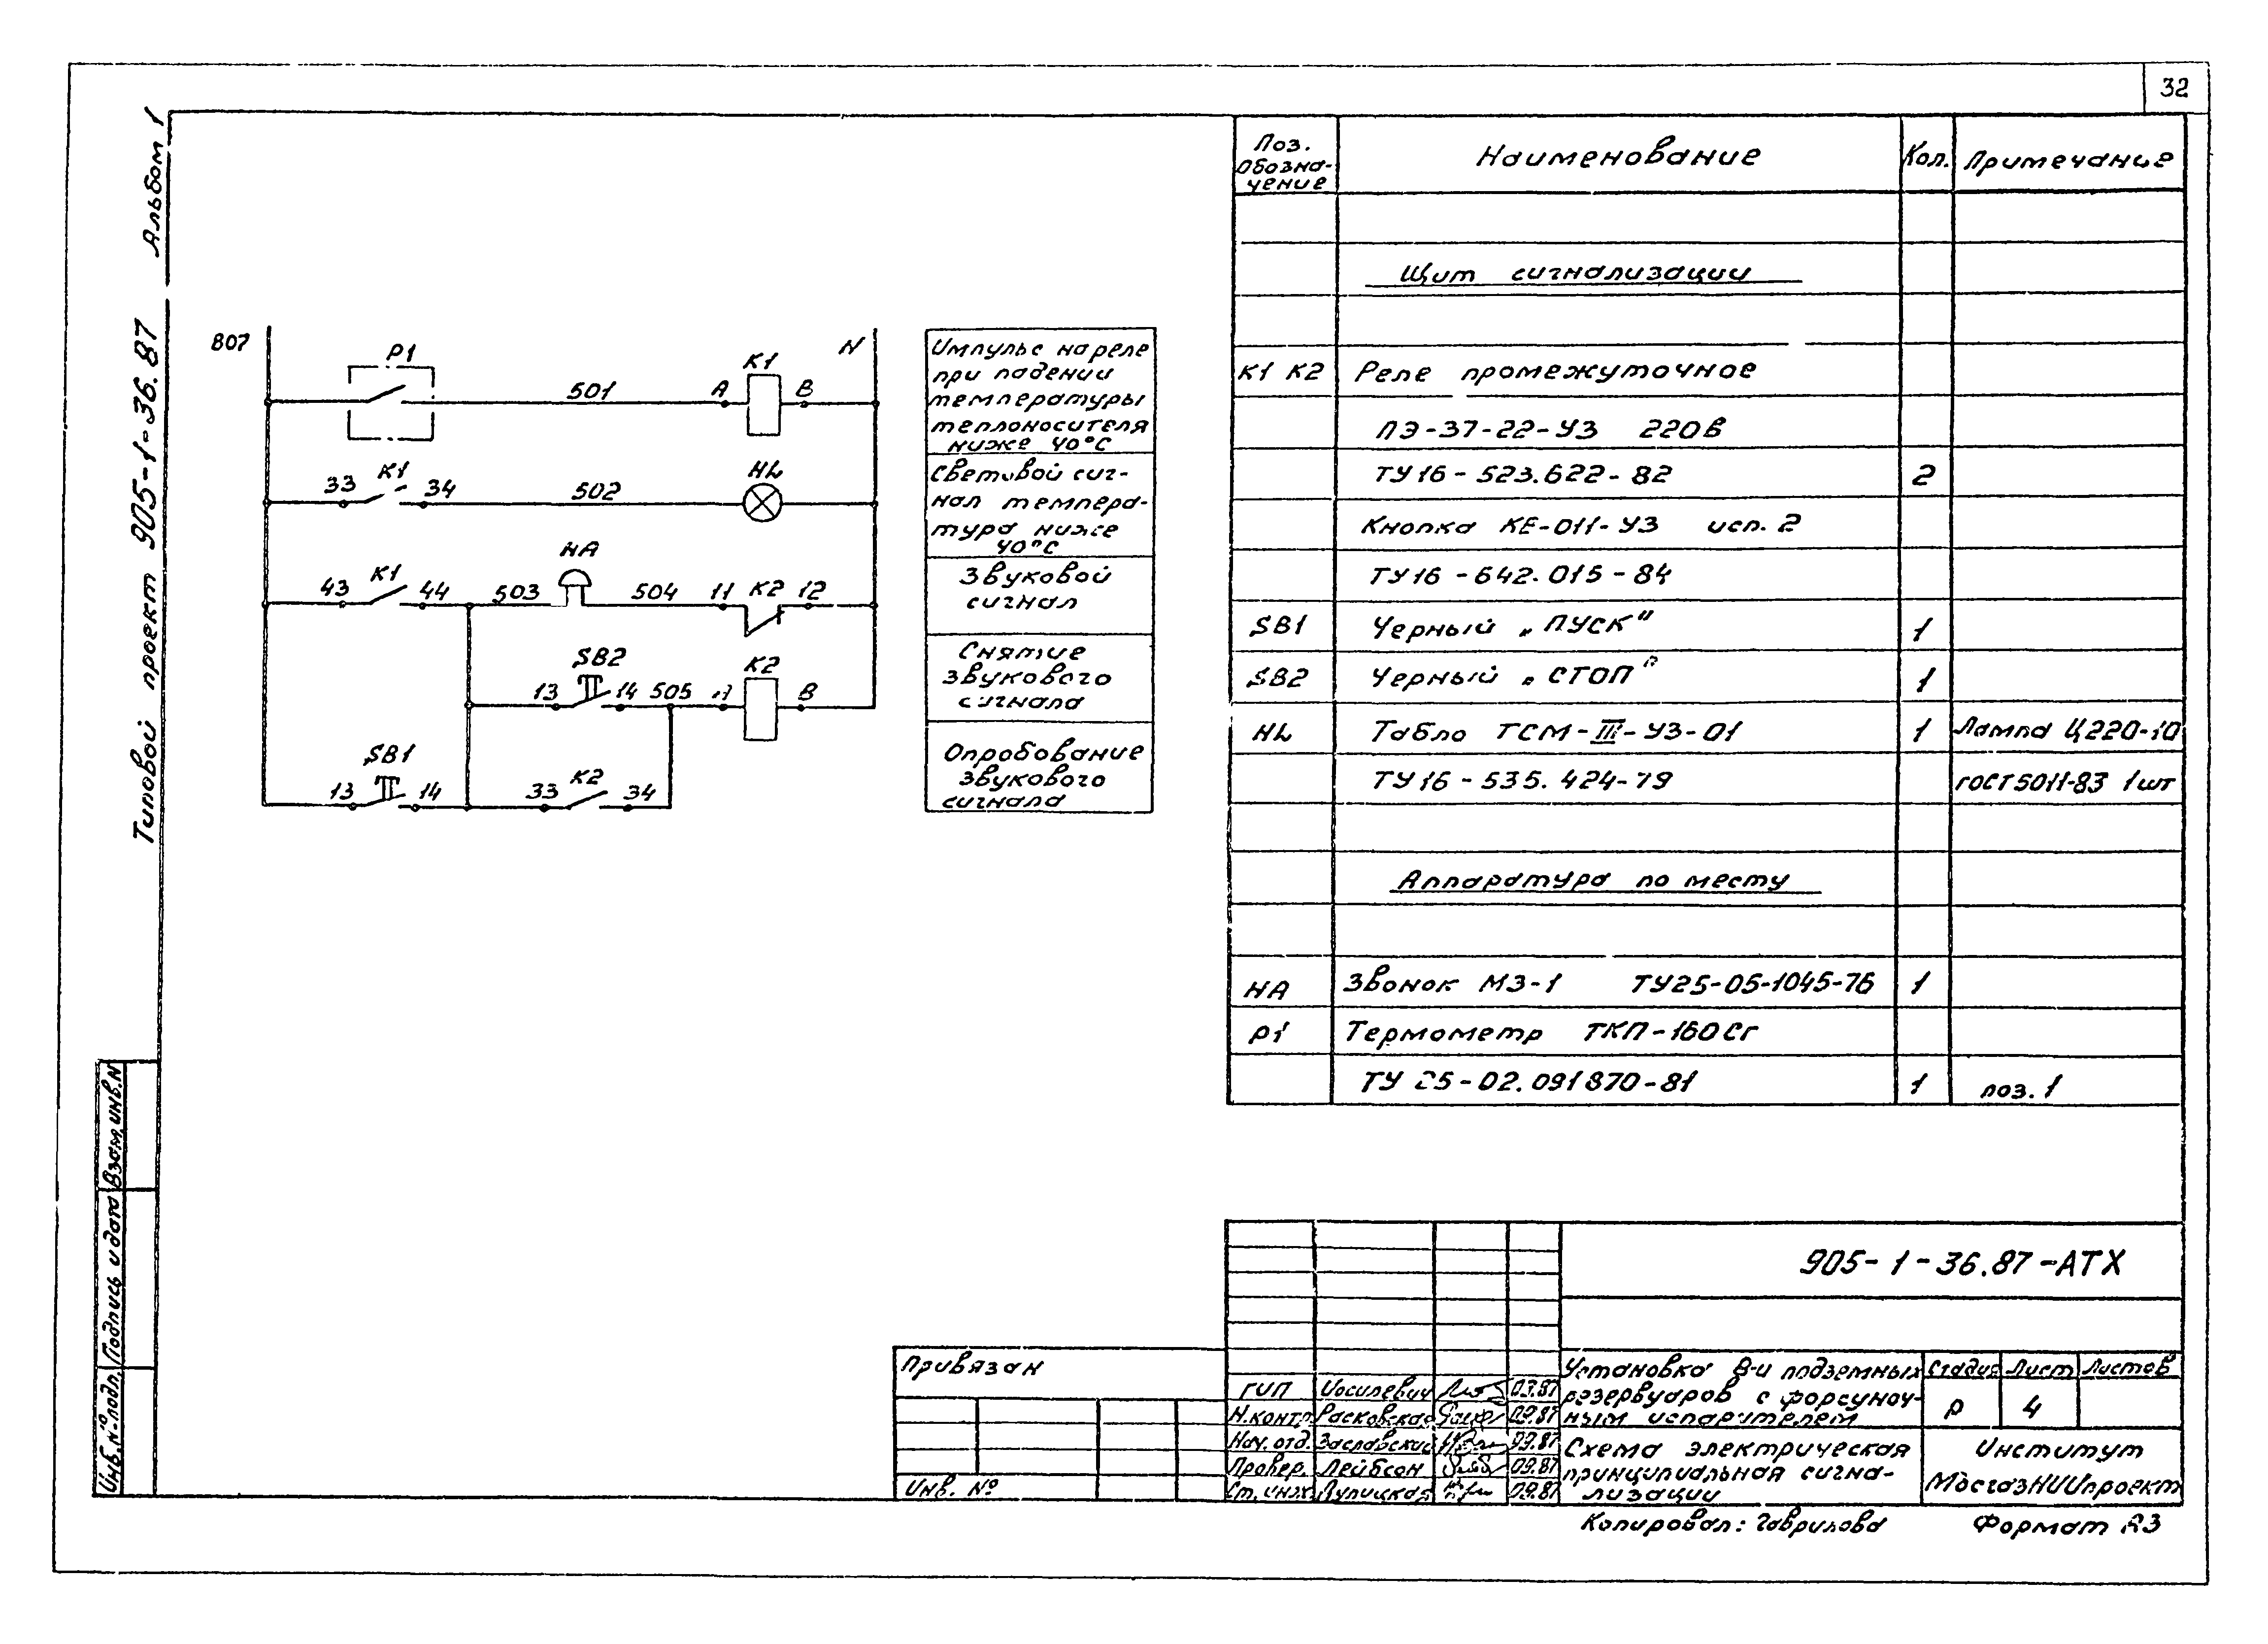 32
Типовой проект 905-1-36.87 Альбом 1
807
N
P1
501
A
K1
B
33
K1
34
502
HL
43
K1
44
503
HA
504
11
K2
12
13
SB2
14
505
A
K2
B
13
SB1
14
33
K2
34
Импульс на реле
при падении
температуры
теплоносителя
ниже 40°С
Световой сиг-
нал темпера-
тура ниже
40°С
Звуковой
сигнал
Снятие
звукового
сигнала
Опробование
звукового
сигнала
Поз. Обозна-чение Наименование Кол. Примечание
Щит сигнализации
K1 K2 Реле промежуточное
ПЭ-37-22-У3 220В
ТУ16-523.622-82 2
Кнопка КЕ-011-У3 исп. 2
ТУ16-642.015-84
SB1 Черный „ПУСК" 1
SB2 Черный „СТОП" 1
HL Табло ТСМ-III-У3-01 1 Лампа Ц220-10
ТУ16-535.424-79 ГОСТ5011-83 1шт
Аппаратура по месту
HA Звонок МЗ-1 ТУ25-05-1045-76 1
P1 Термометр ТКП-160Сг
ТУ 25-02.091870-81 1 поз. 1
Взам.инв.N
Подпись и дата
Инв.№подл.
Привязан
Инв. №
905-1-36.87-АТХ
ГИП Иосилевич 09.87
Н.контр. Расковская 09.87
Нач.отд. Заславский 09.87
Провер. Лейбсон 09.87
Ст.инж. 09.87
Установка 8-и подземных
резервуаров с форсуноч-
ным испарителем
Стадия Лист Листов
Р 4
Схема электрическая
принципиальная сигна-
лизации
Институт
МосгазНИИпроект
Копировал: Гаврилова
Формат А3